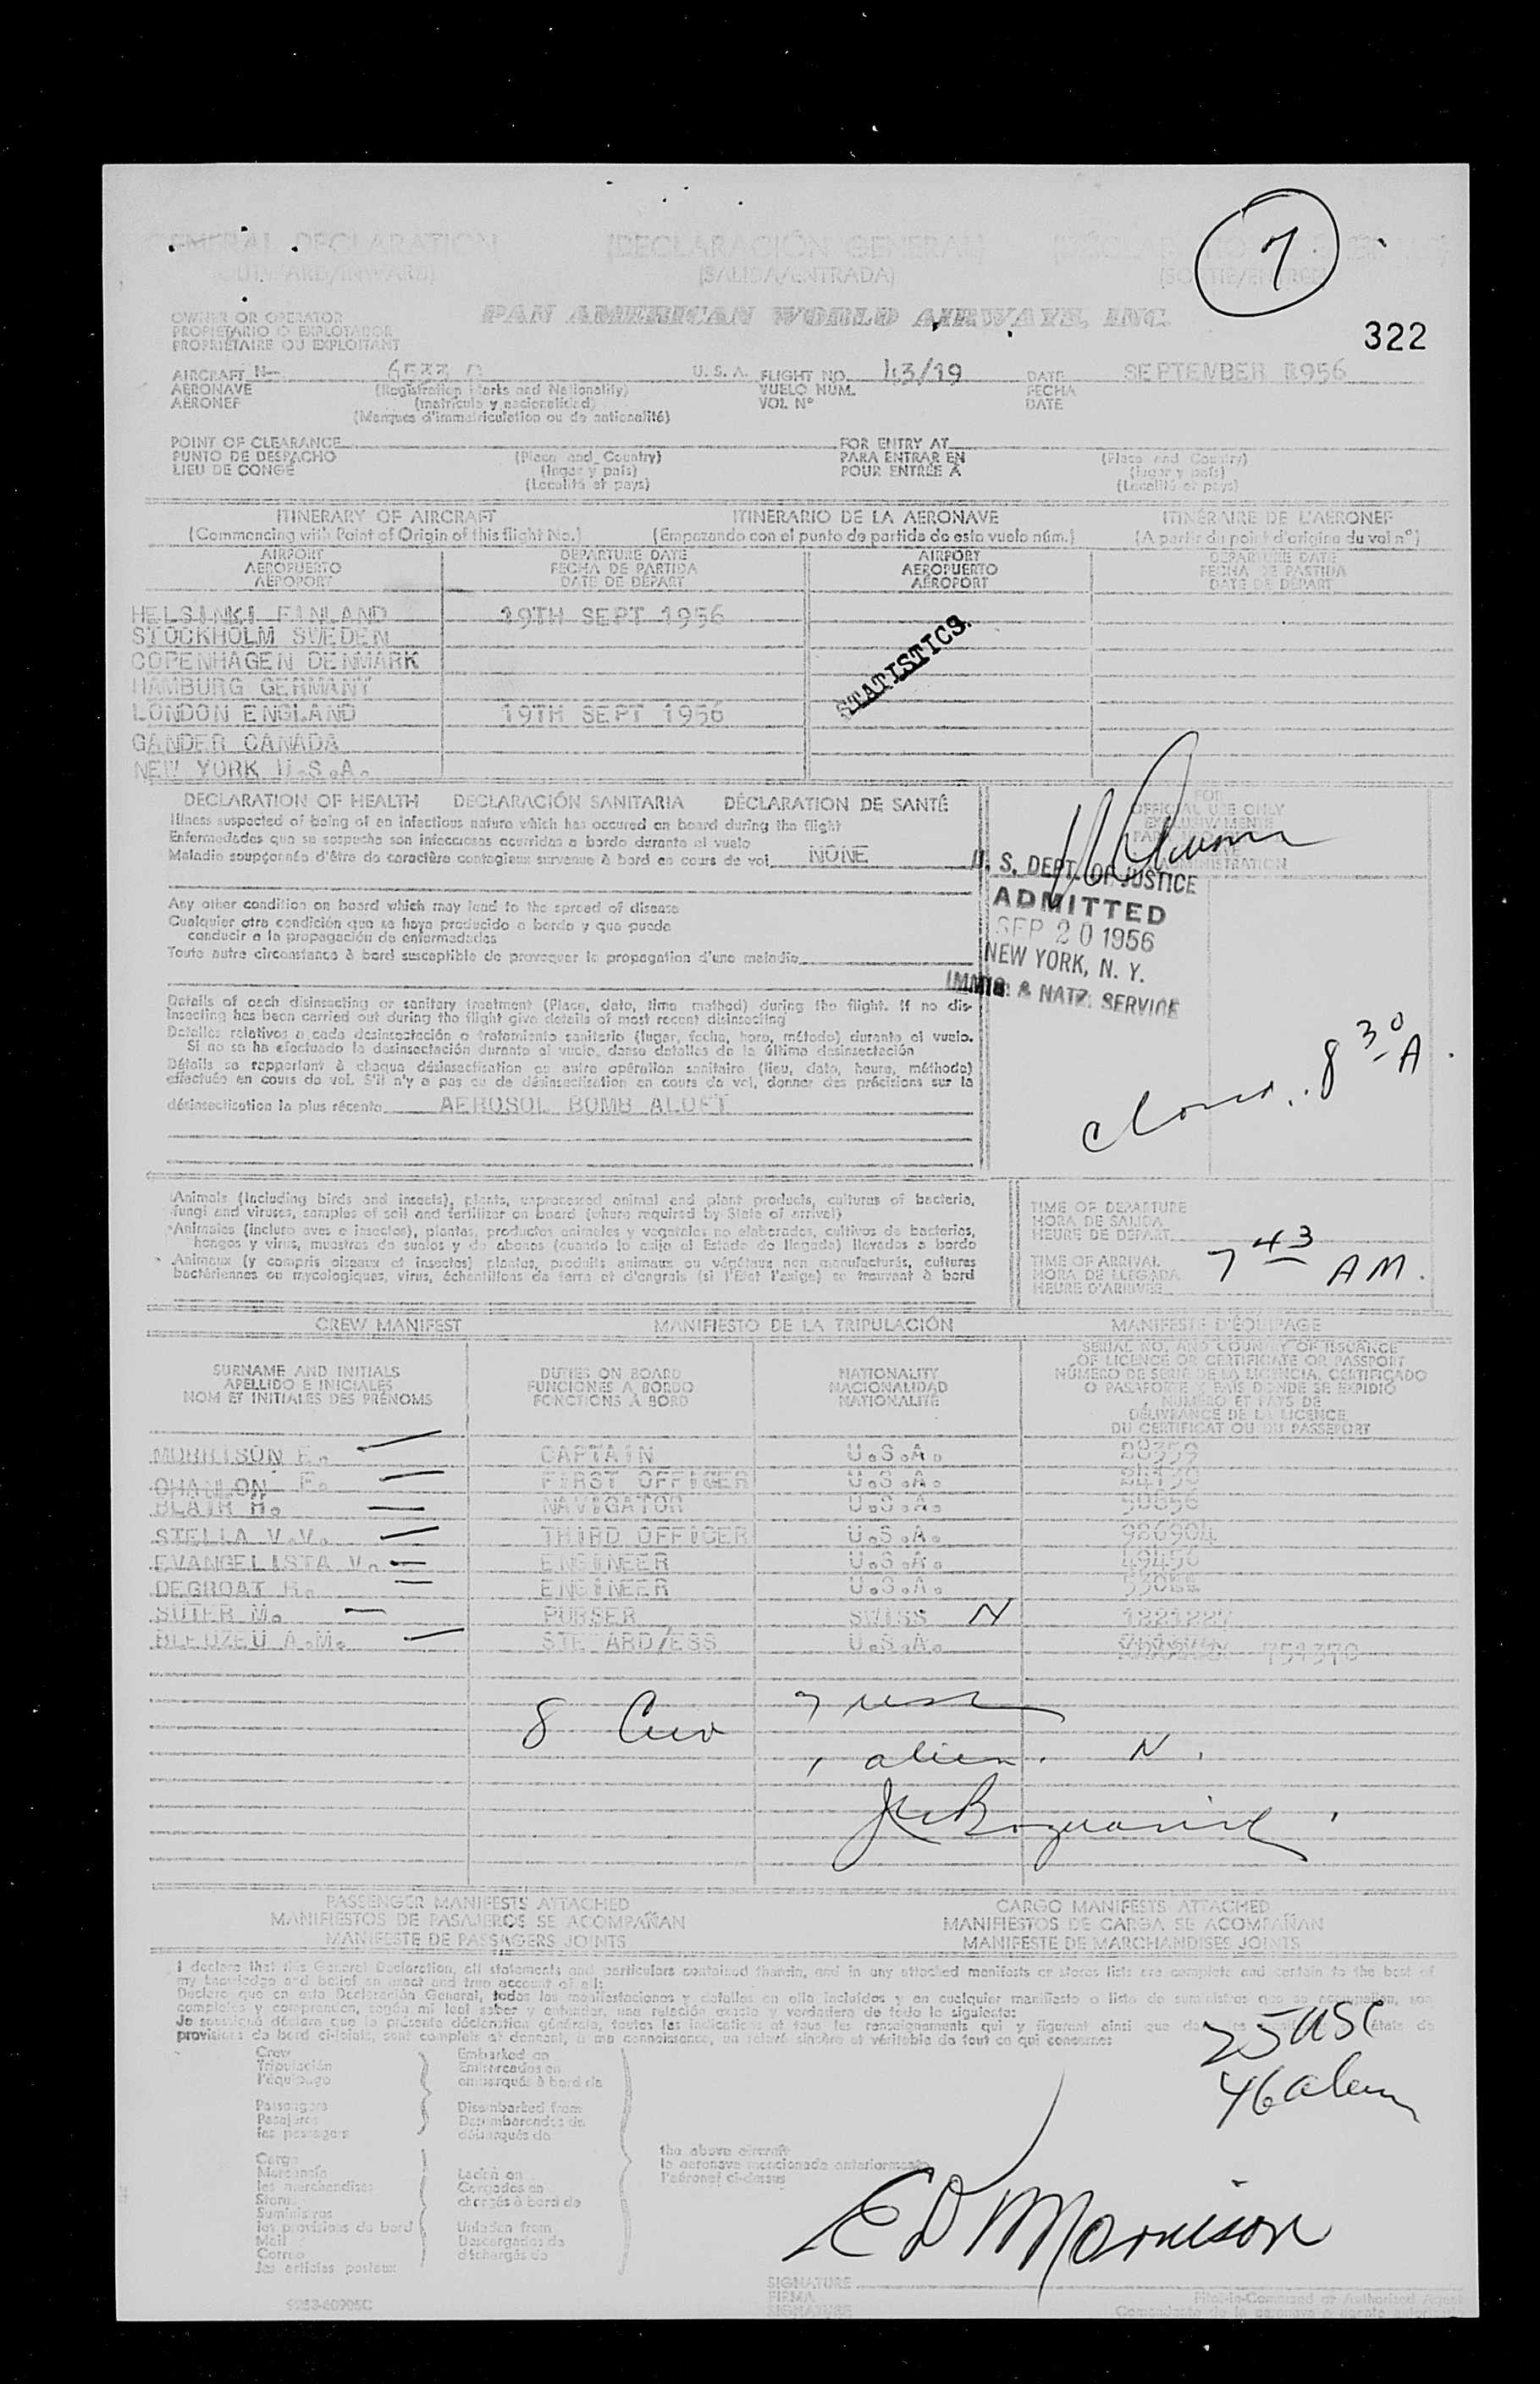 7
GENERAL DECLARATION (DECLARACIÓN GENERAL)
(OUTWARD/INWARD) (SALIDA/ENTRADA)
PAN AMERICAN WORLD AIRWAYS, INC.
OWNER OR OPERATOR
PROPIETARIO O EXPLOTADOR
PROPRIÉTAIRE OU EXPLOITANT
322
AIRCRAFT N- U. S. A. FLIGHT NO. 43/19 DATE SEPTEMBER 1956
AERONAVE (Registration Marks and Nationality) VUELO NÚM. FECHA
AÉRONEF (matrícula y nacionalidad) VOL Nº DATE
(Marques d'immatriculation ou de nationalité)
POINT OF CLEARANCE FOR ENTRY AT
PUNTO DE DESPACHO (Place and Country) PARA ENTRAR EN (Place and Country)
LIEU DE CONGÉ (lugar y país) POUR ENTRÉE À (lugar y país)
(Localité et pays) (Localité et pays)
ITINERARY OF AIRCRAFT ITINERARIO DE LA AERONAVE ITINÉRAIRE DE L'AÉRONEF
(Commencing with Point of Origin of this flight No.) (Empezando con el punto de partida de este vuelo núm.) (A partir du point d'origine du vol nº)
AIRPORT DEPARTURE DATE AIRPORT DEPARTURE DATE
AEROPUERTO FECHA DE PARTIDA AEROPUERTO FECHA DE PARTIDA
AÉROPORT DATE DE DÉPART AÉROPORT DATE DE DÉPART
HELSINKI FINLAND 19TH SEPT 1956
STOCKHOLM SWEDEN
COPENHAGEN DENMARK
HAMBURG GERMANY
LONDON ENGLAND 19TH SEPT 1956
GANDER CANADA
NEW YORK U.S.A.
STATISTICS.
DECLARATION OF HEALTH DECLARACIÓN SANITARIA DÉCLARATION DE SANTÉ
Illness suspected of being of an infectious nature which has occured on board during the flight
Enfermedades que se sospeche son infecciosas ocurridas a bordo durante el vuelo
Maladie soupçonnée d'être de caractère contagieux survenue à bord en cours de vol NONE
Any other condition on board which may lead to the spread of disease
Cualquier otra condición que se haya producido a bordo y que pueda
conducir a la propagación de enfermedades
Toute autre circonstance à bord susceptible de provoquer la propagation d'une maladie
Details of each disinsecting or sanitary treatment (Place, date, time method) during the flight. If no dis-
insecting has been carried out during the flight give details of most recent disinsecting
Detalles relativos a cada desinsectación o tratamiento sanitario (lugar, fecha, hora, método) durante el vuelo.
Si no se ha efectuado la desinsectación durante el vuelo, danse detalles de la última desinsectación
Détails se rapportant à chaque désinsectisation ou autre opération sanitaire (lieu, date, heure, méthode)
effectuée en cours de vol. S'il n'y a pas eu de désinsectisation en cours de vol, donner des précisions sur la
désinsectisation la plus récente AEROSOL BOMB ALOFT
FOR
OFFICIAL USE ONLY
U. S. DEPT. OF JUSTICE
ADMITTED
SEP 20 1956
NEW YORK, N. Y.
IMMIG. & NATZ. SERVICE
8 30 A.
Animals (including birds and insects), plants, unprocessed animal and plant products, cultures of bacteria,
fungi and viruses, samples of soil and fertilizer on board (where required by State of arrival)
Animales (incluso aves e insectos), plantas, productos animales y vegetales no elaborados, cultivos de bacterias,
hongos y virus, muestras de suelos y de abonos (cuando lo exija el Estado de llegada) llevados a bordo
Animaux (y compris oiseaux et insectes) plantes, produits animaux ou végétaux non manufacturés, cultures
bactériennes ou mycologiques, virus, échantillons de terre et d'engrais (si l'État l'exige) se trouvant à bord
TIME OF DEPARTURE
HORA DE SALIDA
HEURE DE DÉPART
TIME OF ARRIVAL 7 43 AM.
HORA DE LLEGADA
HEURE D'ARRIVÉE
CREW MANIFEST MANIFIESTO DE LA TRIPULACIÓN MANIFESTE D'ÉQUIPAGE
SURNAME AND INITIALS DUTIES ON BOARD NATIONALITY
APELLIDO E INICIALES FUNCIONES A BORDO NACIONALIDAD
NOM ET INITIALES DES PRÉNOMS FONCTIONS À BORD NATIONALITÉ
SERIAL NO. AND COUNTRY OF ISSUANCE
OF LICENCE OR CERTIFICATE OR PASSPORT
NÚMERO DE SERIE DE LA LICENCIA, CERTIFICADO
O PASAPORTE Y PAÍS DONDE SE EXPIDIÓ
NUMÉRO ET PAYS DE
DÉLIVRANCE DE LA LICENCE
DU CERTIFICAT OU DU PASSEPORT
MORRISON E. CAPTAIN U.S.A.
OHANLON F. FIRST OFFICER U.S.A.
BLAIR H. NAVIGATOR U.S.A.
STELLA V.V. THIRD OFFICER U.S.A. 986904
EVANGELISTA V. ENGINEER U.S.A. 49456
DEGROAT R. ENGINEER U.S.A.
SUTER M. PURSER SWISS N 1221227
BLEUZEU A.M. U.S.A. 751370
8 Crew 7 usc
1 alien. N.
PASSENGER MANIFESTS ATTACHED CARGO MANIFESTS ATTACHED
MANIFIESTOS DE PASAJEROS SE ACOMPAÑAN MANIFIESTOS DE CARGA SE ACOMPAÑAN
MANIFESTE DE PASSAGERS JOINTS MANIFESTE DE MARCHANDISES JOINTS
I declare that this General Declaration, all statements and particulars contained therein, and in any attached manifests or stores lists are complete and certain to the best of
my knowledge and belief an exact and true account of all:
Declaro que en esta Declaración General, todas las manifestaciones y detalles en ella incluidos y en cualquier manifiesto o lista de suministros que se acompañan, son
completos y comprenden, según mi leal saber y entender, una relación exacta y verdadera de todo lo siguiente:
provisions de bord ci-joints, sont complets et donnent, à ma connaissance, un relevé sincère et véritable de tout ce qui concerne:
25 USC
46 alien
Crew Embarked on
Tripulación Embarcados en
l'équipage embarqués à bord de
Passengers Disembarked from
Pasajeros Desembarcados de
les passagers débarqués de
the above aircraft
la aeronave mencionada anteriormente
l'aéronef ci-dessus
Cargo
Mercancía Laden on
les marchandises Cargados en
Stores chargés à bord de
Suministros
les provisions de bord Unladen from
Mail Descargados de
Correo déchargés de
les articles postaux
E D Morrison
SIGNATURE
FIRMA
SIGNATURE
Pilot-in-Command or Authorized Agent